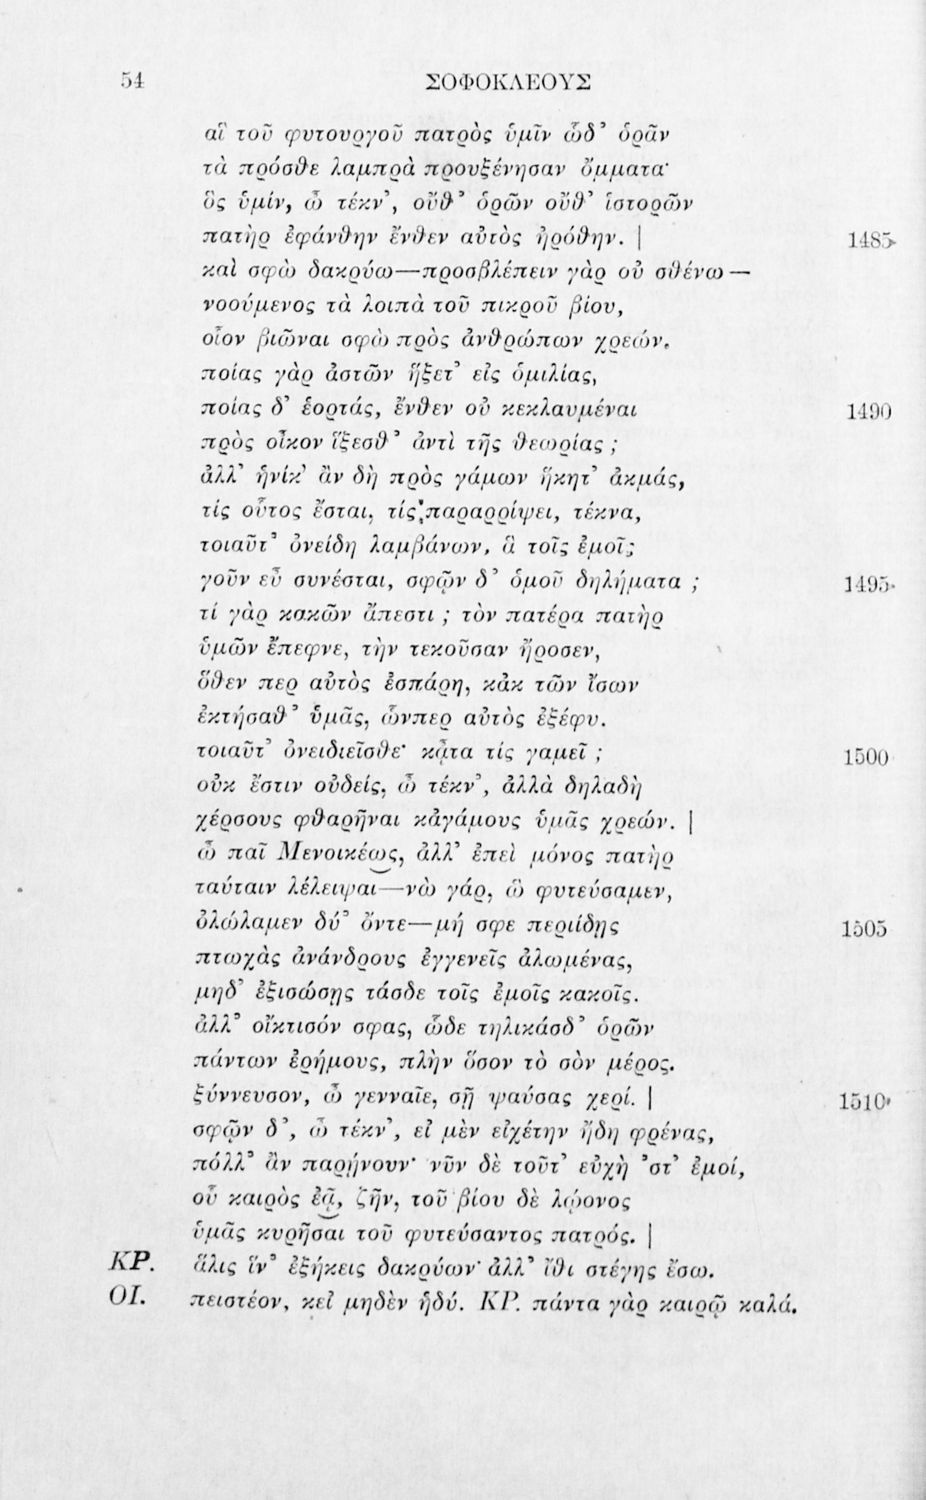 54 ΣΟΦΟΚΛΕΟΥΣ
αἳ τοῦ φυτουργοῦ πατρὸς ὑμῖν ὧδ᾽ ὁρᾶν
τὰ πρόσθε λαμπρὰ προυξένησαν ὄμματα·
ὃς ὑμίν, ὦ τέκν᾽, οὔθ᾽ ὁρῶν οὔθ᾽ ἱστορῶν
πατὴρ ἐφάνθην ἔνθεν αὐτὸς ἠρόθην. | 1485
καὶ σφὼ δακρύω—προσβλέπειν γὰρ οὐ σθένω—
νοούμενος τὰ λοιπὰ τοῦ πικροῦ βίου,
οἷον βιῶναι σφὼ πρὸς ἀνθρώπων χρεών.
ποίας γὰρ ἀστῶν ἥξετ᾽ εἰς ὁμιλίας,
ποίας δ᾽ ἑορτάς, ἔνθεν οὐ κεκλαυμέναι 1490
πρὸς οἶκον ἵξεσθ᾽ ἀντὶ τῆς θεωρίας ;
ἀλλ᾽ ἡνίκ᾽ ἂν δὴ πρὸς γάμων ἥκητ᾽ ἀκμάς,
τίς οὗτος ἔσται, τίς παραρρίψει, τέκνα,
τοιαῦτ᾽ ὀνείδη λαμβάνων, ἃ τοῖς ἐμοῖς
γοῦν εὖ συνέσται, σφῷν δ᾽ ὁμοῦ δηλήματα ; 1495
τί γὰρ κακῶν ἄπεστι ; τὸν πατέρα πατὴρ
ὑμῶν ἔπεφνε, τὴν τεκοῦσαν ἤροσεν,
ὅθεν περ αὐτὸς ἐσπάρη, κἀκ τῶν ἴσων
ἐκτήσαθ᾽ ὑμᾶς, ὧνπερ αὐτὸς ἐξέφυ.
τοιαῦτ᾽ ὀνειδιεῖσθε· κᾆτα τίς γαμεῖ ; 1500
οὐκ ἔστιν οὐδείς, ὦ τέκν᾽, ἀλλὰ δηλαδὴ
χέρσους φθαρῆναι κἀγάμους ὑμᾶς χρεών. |
ὦ παῖ Μενοικέως, ἀλλ᾽ ἐπεὶ μόνος πατὴρ
ταύταιν λέλειψαι—νὼ γάρ, ὣ φυτεύσαμεν,
ὀλώλαμεν δύ᾽ ὄντε—μή σφε περιίδῃς 1505
πτωχὰς ἀνάνδρους ἐγγενεῖς ἀλωμένας,
μηδ᾽ ἐξισώσῃς τάσδε τοῖς ἐμοῖς κακοῖς.
ἀλλ᾽ οἴκτισόν σφας, ὧδε τηλικάσδ᾽ ὁρῶν
πάντων ἐρήμους, πλὴν ὅσον τὸ σὸν μέρος.
ξύννευσον, ὦ γενναῖε, σῇ ψαύσας χερί. | 1510
σφῷν δ᾽, ὦ τέκν᾽, εἰ μὲν εἰχέτην ἤδη φρένας,
πόλλ᾽ ἂν παρῄνουν· νῦν δὲ τοῦτ᾽ εὐχὴ ᾽στ᾽ ἐμοί,
οὗ καιρὸς ἐᾷ, ζῆν, τοῦ βίου δὲ λῴονος
ὑμᾶς κυρῆσαι τοῦ φυτεύσαντος πατρός. |
ΚΡ. ἅλις ἵν᾽ ἐξήκεις δακρύων· ἀλλ᾽ ἴθι στέγης ἔσω.
ΟΙ. πειστέον, κεἰ μηδὲν ἡδύ. ΚΡ. πάντα γὰρ καιρῷ καλά.